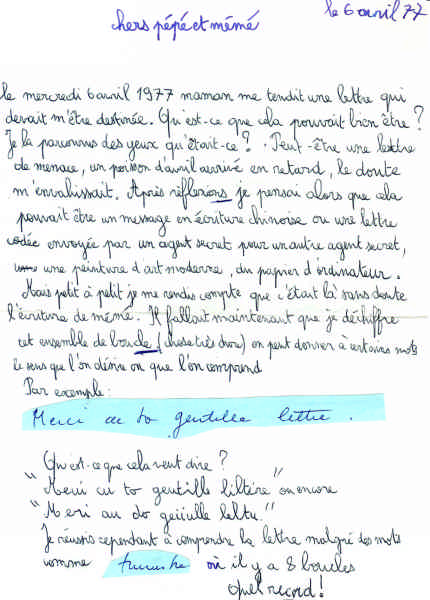 le 6 avril 77
chers pépé et mémé
le mercredi 6 avril 1977 maman me tendit une lettre qui
devait m'être destinée. Qu'est-ce que cela pouvait bien être ?
Je la parcourus des yeux qu'était-ce ? Peut-être une lettre
de menace, un poisson d'avril arrivé en retard, le doute
m'envahissait. Après réflexions je pensai alors que cela
pouvait être un message en écriture chinoise ou une lettre
codée envoyée par un agent secret pour un autre agent secret,
une peinture d'art moderne, du papier d'ordinateur.
Mais petit à petit je me rendis compte que c'était là sans doute
l'écriture de mémé. Il fallait maintenant que je déchiffre
cet ensemble de boucle (chose très dure) on peut donner à certains mots
le sens que l'on désire ou que l'on comprend
Par exemple :
Merci au to gentille lettre.
Qu'est-ce que cela veut dire ?
"Merci au to gentille liltère" ou encore
"Meri au do geiiulle leltu."
Je réussis cependant à comprendre la lettre malgré des mots
comme où il y a 8 boucles
quel record !